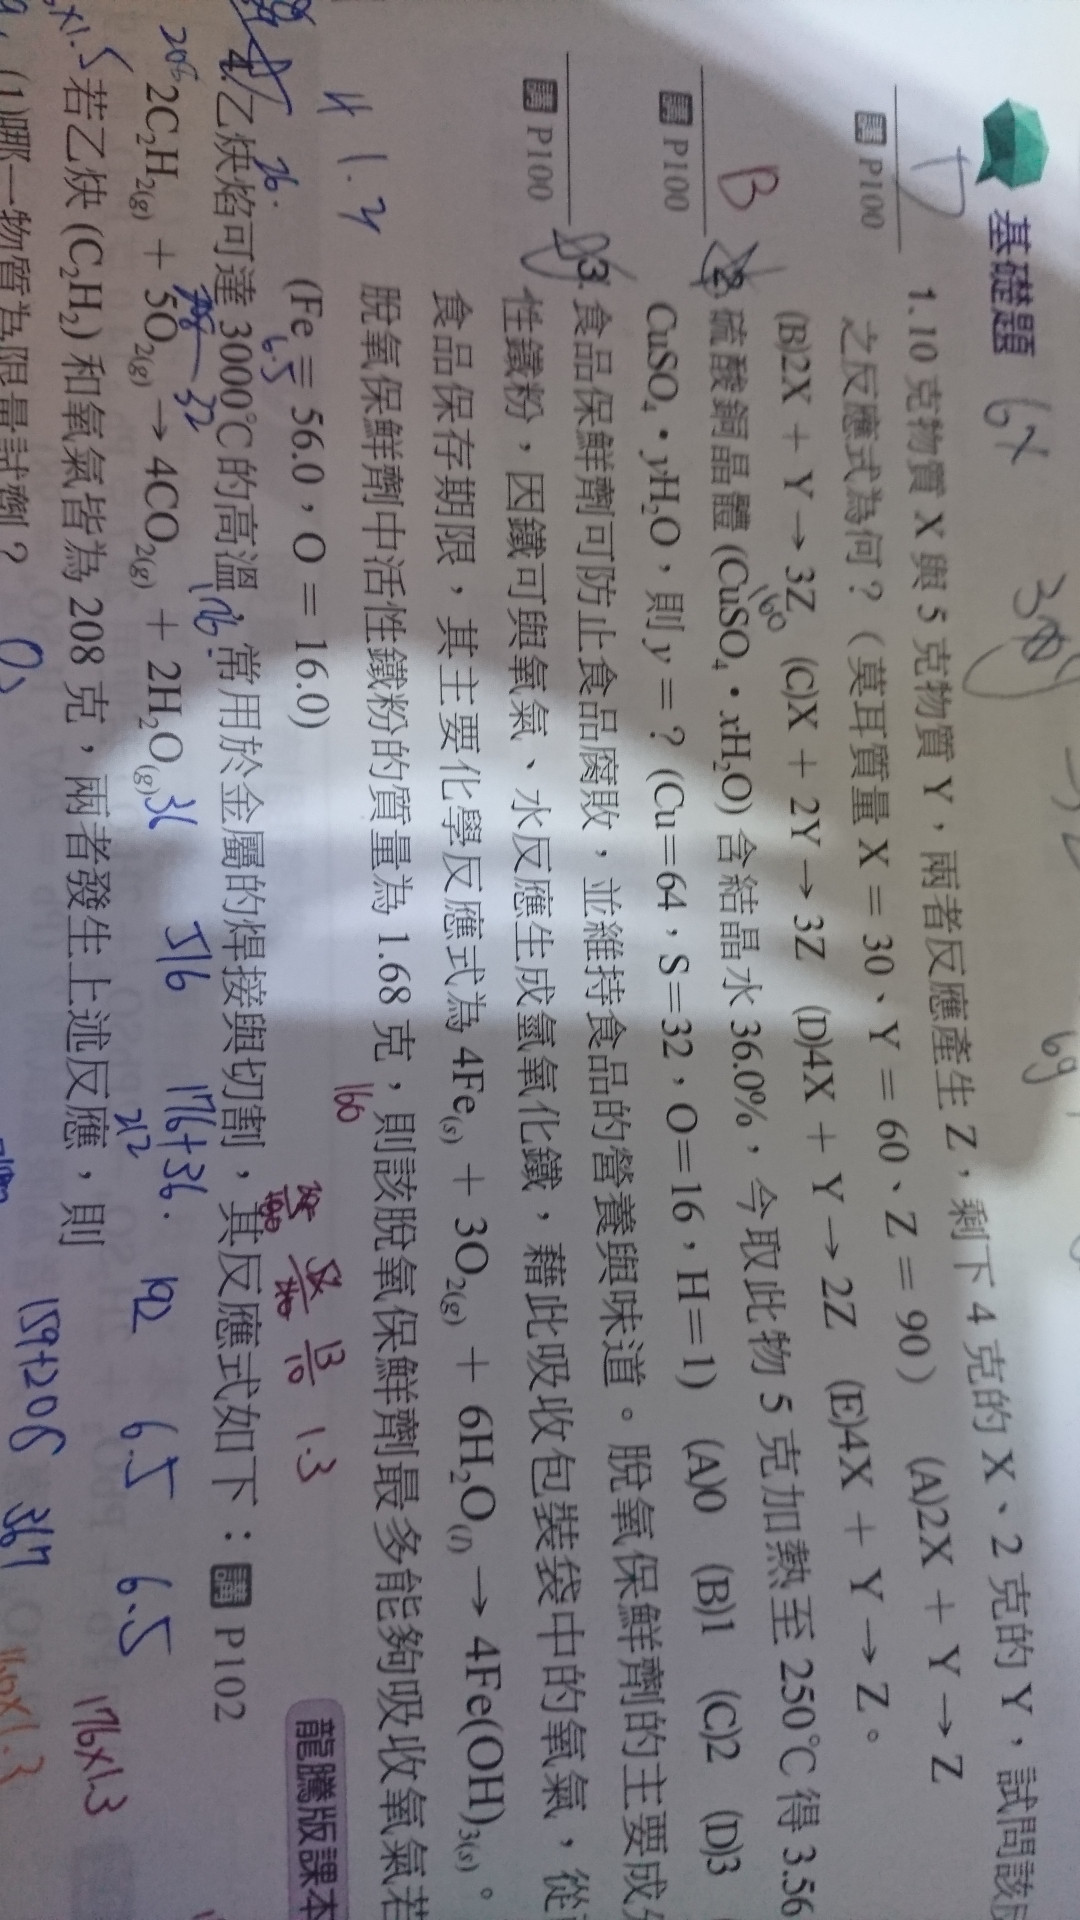 基礎題
1. 10 克物質 X 與 5 克物質 Y，兩者反應產生 Z，剩下 4 克的 X、2 克的 Y，試問該
講 P100 之反應式為何？（莫耳質量 X = 30、Y = 60、Z = 90） (A)2X + Y → Z
(B)2X + Y → 3Z (C)X + 2Y → 3Z (D)4X + Y → 2Z (E)4X + Y → Z。
B 2. 硫酸銅晶體 (CuSO₄・xH₂O) 含結晶水 36.0%，今取此物 5 克加熱至 250℃ 得 3.56
講 P100 CuSO₄・yH₂O，則 y = ? (Cu=64，S=32，O=16，H=1) (A)0 (B)1 (C)2 (D)3
3. 食品保鮮劑可防止食品腐敗，並維持食品的營養與味道。脫氧保鮮劑的主要成
講 P100 性鐵粉，因鐵可與氧氣、水反應生成氫氧化鐵，藉此吸收包裝袋中的氧氣，從
食品保存期限，其主要化學反應式為 4Fe(s) + 3O₂(g) + 6H₂O(l) → 4Fe(OH)₃(s)。
脫氧保鮮劑中活性鐵粉的質量為 1.68 克，則該脫氧保鮮劑最多能夠吸收氧氣若
(Fe = 56.0，O = 16.0)
龍騰版課本
4. 乙炔焰可達 3000℃ 的高溫，常用於金屬的焊接與切割，其反應式如下：講 P102
2C₂H₂(g) + 5O₂(g) → 4CO₂(g) + 2H₂O(g)
若乙炔 (C₂H₂) 和氧氣皆為 208 克，兩者發生上述反應，則
(1)哪一物質為限量試劑？
160
1.3
26.
32
176.
36
516
176+36.
212
192
6.5
6.5
159+206
367
176×1.3